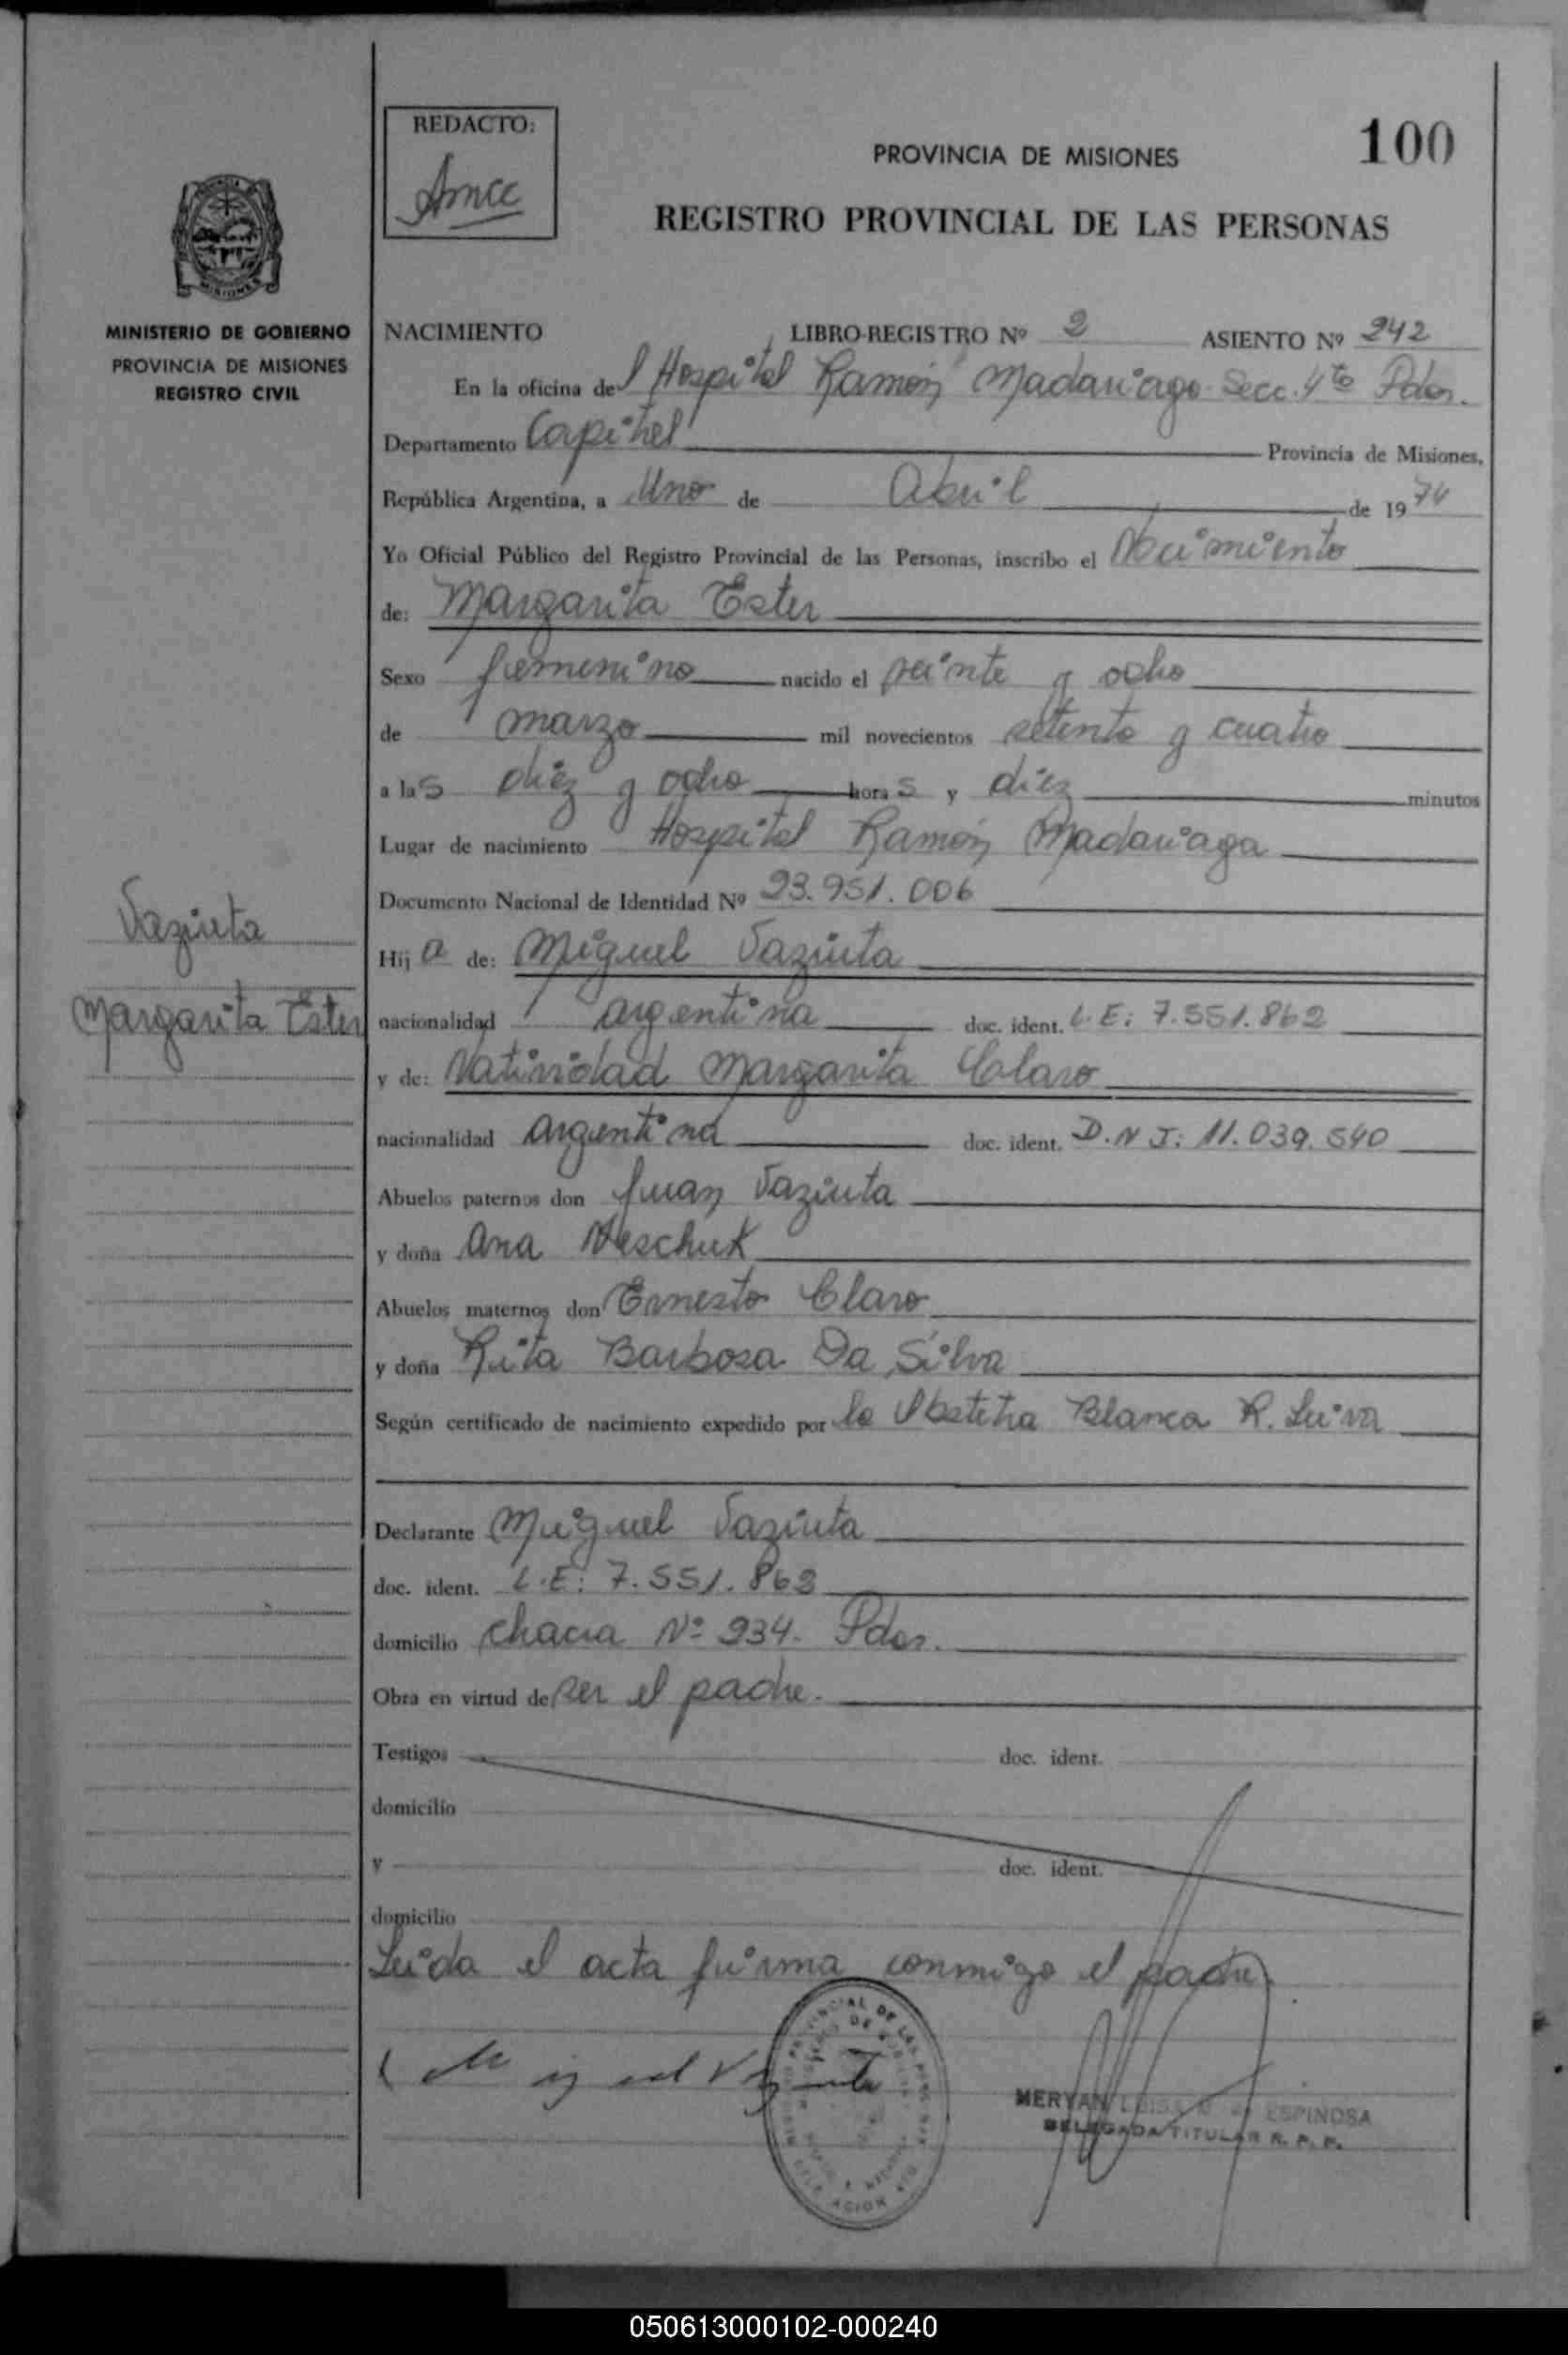 REDACTO:
Amcc
100
PROVINCIA DE MISIONES
REGISTRO PROVINCIAL DE LAS PERSONAS
MINISTERIO DE GOBIERNO
PROVINCIA DE MISIONES
REGISTRO CIVIL
NACIMIENTO LIBRO-REGISTRO Nº 2 ASIENTO Nº 242
En la oficina del Hospital Ramón Madariaga Secc. 4ta Pdas.
Departamento Capital Provincia de Misiones,
República Argentina, a Uno de Abril de 1974
Yo Oficial Público del Registro Provincial de las Personas, inscribo el Nacimiento
de: Margarita Ester
Sexo femenino nacido el veinte y ocho
de marzo mil novecientos setenta y cuatro
a las diez y ocho horas y diez minutos
Lugar de nacimiento Hospital Ramón Madariaga
Documento Nacional de Identidad Nº 23.951.006
Vaziuta
Hija de: Miguel Vaziuta
Margarita Ester
nacionalidad argentina doc. ident. L.E: 7.551.862
y de: Natividad Margarita Claro
nacionalidad argentina doc. ident. D.N I: 11.039.540
Abuelos paternos don Juan Vaziuta
y doña Ana
Abuelos maternos don Ernesto Claro
y doña Rita Barbosa Da Silva
Según certificado de nacimiento expedido por la Obstetra Blanca R. Leiva
Declarante Miguel Vaziuta
doc. ident. L.E: 7.551.862
domicilio chacra Nº 234. Pdas.
Obra en virtud de ser el padre.
Testigos doc. ident.
domicilio
y doc. ident.
domicilio
Leida el acta firma conmigo el padre.
MERYAN LUISA ESPINOSA
DELEGADA TITULAR R. P. P.
050613000102-000240